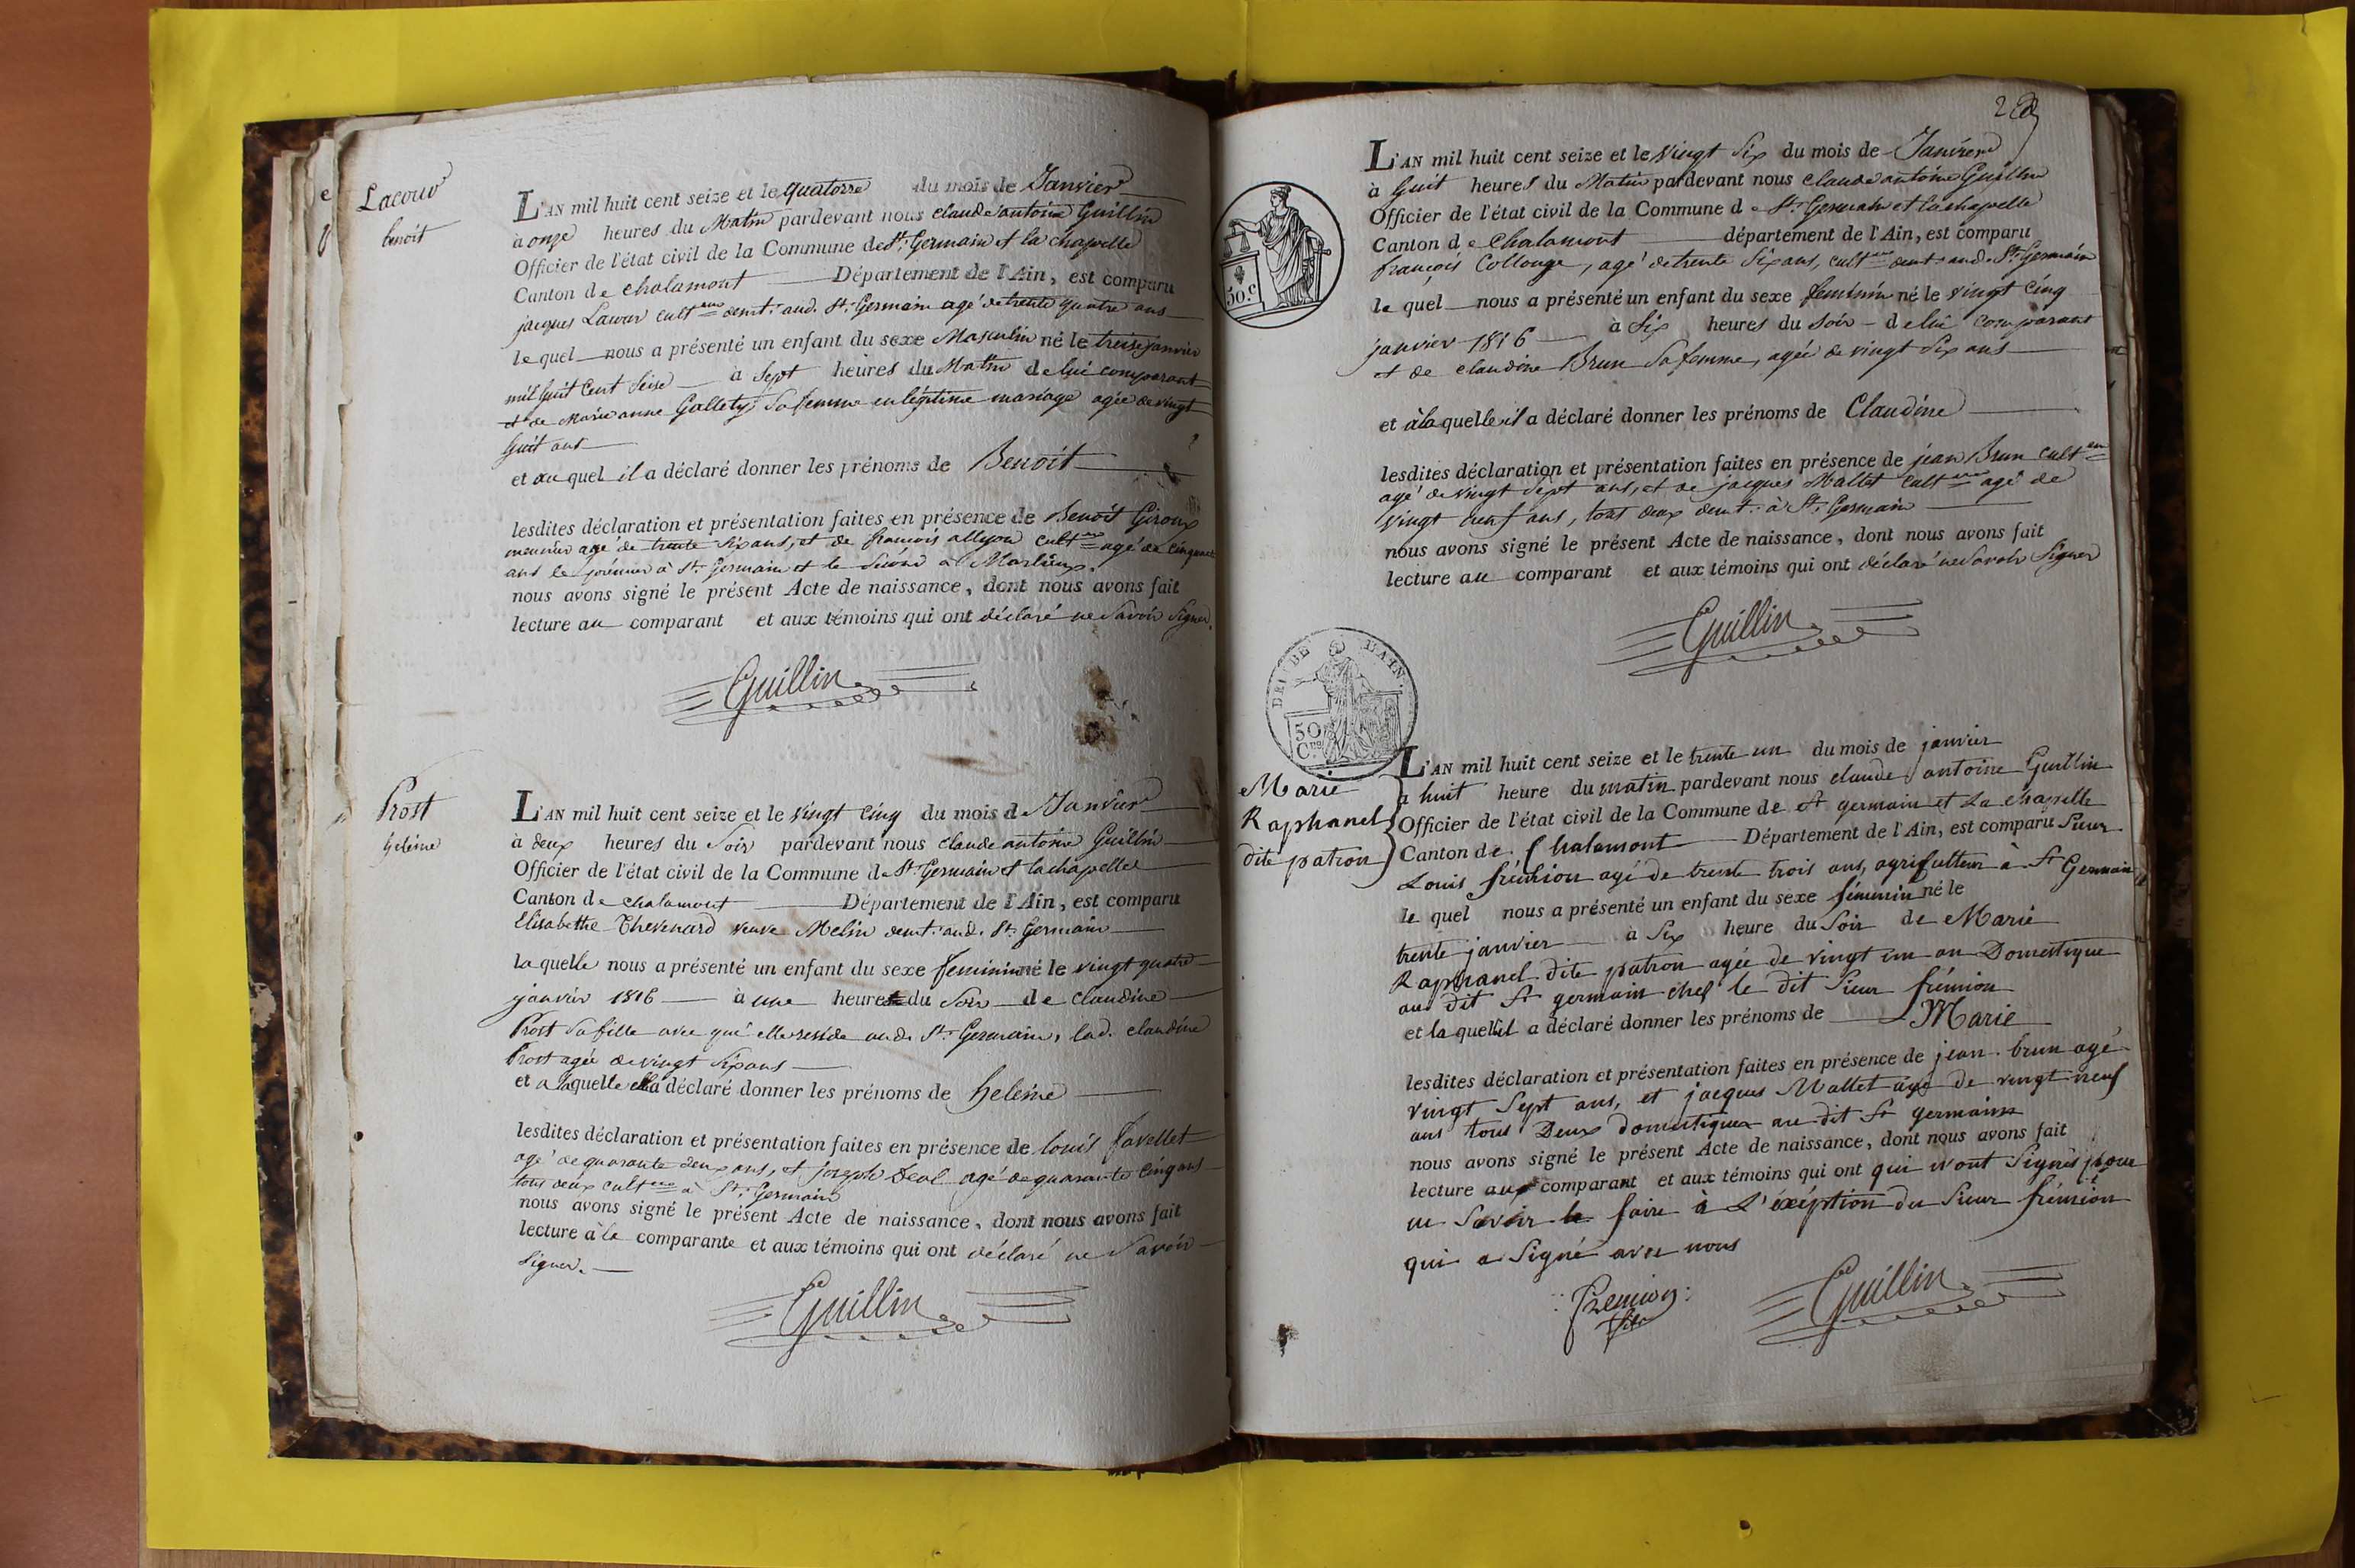 Lacour
benoit
L'AN mil huit cent seize et le quatorze du mois de Janvier
à onze heures du Matin pardevant nous claude antoine Guillin
Officier de l'état civil de la Commune de St. Germain et la chapelle
Canton de chalamont Département de l'Ain, est comparu
jacques Lacour cult.eur demt. aud. St. Germain agé de trente quatre ans
le quel nous a présenté un enfant du sexe Masculin né le treize janvier
mil huit Cent Seise à Sept heures du Matin de lui comparant
et de Marie anne Gallety Sa femme en légitime mariage agée de vingt
huit ans
et au quel il a déclaré donner les prénoms de Benoit
lesdites déclaration et présentation faites en présence de Benoit Giroux
meunier agé de trente Six ans, et de francois allyon cult.eur agé de cinquante
ans le premier à St. Germain et le Second à Marlieux.
nous avons signé le présent Acte de naissance, dont nous avons fait
lecture au comparant et aux témoins qui ont déclaré ne Savoir Signer.
Guillin
Prost
helène
L'AN mil huit cent seize et le vingt cinq du mois de Janvier
à deux heures du Soir pardevant nous claude antoine Guillin
Officier de l'état civil de la Commune de St. Germain et la chapelle
Canton de chalamont Département de l'Ain, est comparu
Elisabethe Thevenard veuve Melin demt. aud. St. Germain
la quelle nous a présenté un enfant du sexe feminin né le vingt quatre
janvier 1816 à une heure du Soir de claudine
Prost Sa fille avec qui elle reside aud. St. Germain, lad. claudine
Prost agée de vingt Six ans
et a laquelle ella déclaré donner les prénoms de heleine
lesdites déclaration et présentation faites en présence de louis favellet
agé de quarante deux ans, et joseph Deal agé de quarante cinq ans
tous deux cult.eurs à St. Germain
nous avons signé le présent Acte de naissance, dont nous avons fait
lecture à la comparante et aux témoins qui ont déclaré ne Savoir
Signer.
Guillin
L'AN mil huit cent seize et le vingt Six du mois de Janvier
à huit heures du Matin pardevant nous claude antoine Guillin
Officier de l'état civil de la Commune de St. Germain et la chapelle
Canton de Chalamont département de l'Ain, est comparu
françois Collonge, agé de trente Six ans, cult.eur demt. aud. St. Germain
50.c
le quel nous a présenté un enfant du sexe feminin né le vingt cinq
janvier 1816 à Six heures du Soir de lui comparant
et de claudine Brun Sa femme, agée de vingt Six ans
et à la quelle il a déclaré donner les prénoms de Claudine
lesdites déclaration et présentation faites en présence de jean Brun cult.eur
agé de vingt Sept ans, et de jacques Mallet cult.eur agé de
vingt neuf ans, tous deux demt. à St. Germain
nous avons signé le présent Acte de naissance, dont nous avons fait
lecture au comparant et aux témoins qui ont déclaré ne Savoir Signer
Guillin
DE L'AIN.
50
Marie
Raphanel
dite patron
L'AN mil huit cent seize et le trente un du mois de janvier
à huit heure du matin pardevant nous claude antoine Guillin
Officier de l'état civil de la Commune de St germain et La chapelle
Canton de Chalamont Département de l'Ain, est comparu Sieur
Louis frémion agé de trente trois ans, agriculteur à St Germain
le quel nous a présenté un enfant du sexe féminin né le
trente janvier à Six heure du Soir de Marie
Raphanel dite patron agée de vingt un an Domestique
au dit St germain chef le dit Sieur frémion
et la quelle il a déclaré donner les prénoms de Marie
lesdites déclaration et présentation faites en présence de jean brun agé
vingt Sept ans, et jacques Mallet agé de vingt neuf
ans tous Deux domestiques au dit St germain
nous avons signé le présent Acte de naissance, dont nous avons fait
lecture aux comparant et aux témoins qui ont qui n'ont Signés pour
ne Savoir le faire à L'éxéption du Sieur frémion
qui a Signé avec nous
Fremion
Guillin